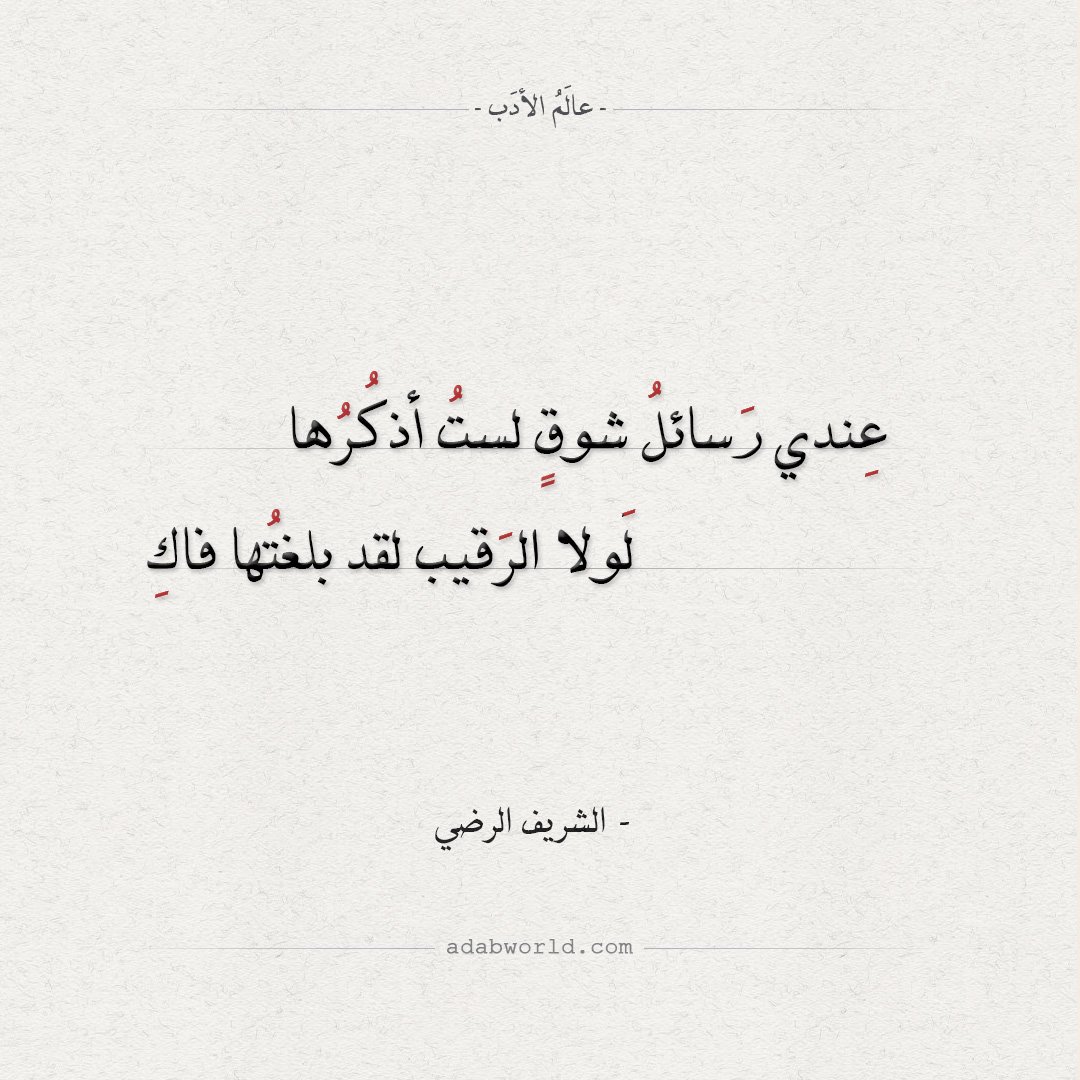 - عالَمُ الأدَب -
عِندي رَسائلُ شوقٍ لستُ أذكُرُها
لَولا الرَقيب لقد بلغتُها فاكِ
- الشريف الرضي
adabworld.com